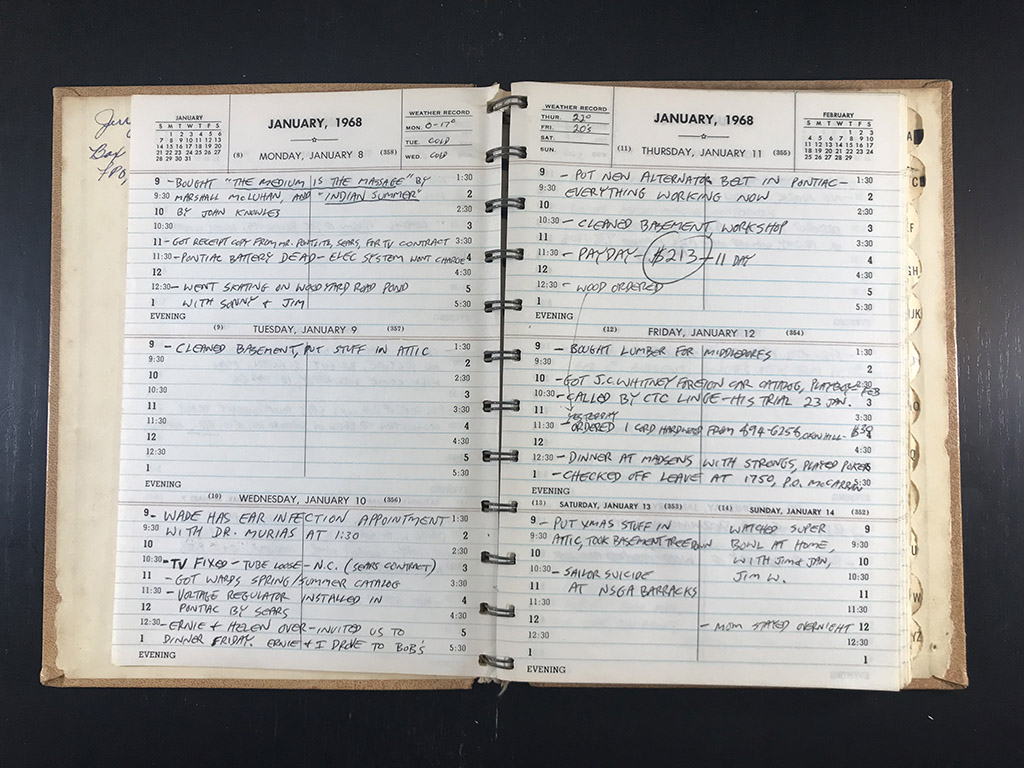 Jerry
Box
FPO,
JANUARY
S M T W T F S
1 2 3 4 5 6
7 8 9 10 11 12 13
14 15 16 17 18 19 20
21 22 23 24 25 26 27
28 29 30 31
JANUARY, 1968
(8) MONDAY, JANUARY 8 (358)
WEATHER RECORD
MON. 0-17°
TUE. COLD
WED. COLD
9 - BOUGHT "THE MEDIUM IS THE MASSAGE" BY 1:30
9:30 MARSHALL MCLUHAN, AND "INDIAN SUMMER" 2
10 BY JOHN KNOWLES 2:30
10:30 3
11 - GOT RECEIPT COPY FROM MR. SEARS, FOR TV CONTRACT 3:30
11:30 - PONTIAC BATTERY DEAD - ELEC SYSTEM WONT CHARGE 4
12 4:30
12:30 - WENT SKATING ON WOODYARD ROAD POND 5
1 WITH SONNY & JIM 5:30
EVENING
(9) TUESDAY, JANUARY 9 (357)
9 - CLEANED BASEMENT, PUT STUFF IN ATTIC 1:30
9:30 2
10 2:30
10:30 3
11 3:30
11:30 4
12 4:30
12:30 5
1 5:30
EVENING
(10) WEDNESDAY, JANUARY 10 (356)
9 - WADE HAS EAR INFECTION APPOINTMENT 1:30
9:30 WITH DR. MURIAS AT 1:30 2
10 2:30
10:30 - TV FIXED - TUBE LOOSE - N.C. (SEARS CONTRACT) 3
11 - GOT WARDS SPRING/SUMMER CATALOG 3:30
11:30 - VOLTAGE REGULATOR INSTALLED IN 4
12 PONTIAC BY SEARS 4:30
12:30 - ERNIE & HELEN OVER - INVITED US TO 5
1 DINNER FRIDAY. ERNIE & I DROVE TO BOB'S 5:30
EVENING
WEATHER RECORD
THUR. 22°
FRI. 20's
SAT.
SUN.
JANUARY, 1968
(11) THURSDAY, JANUARY 11 (355)
FEBRUARY
S M T W T F S
1 2 3
4 5 6 7 8 9 10
11 12 13 14 15 16 17
18 19 20 21 22 23 24
25 26 27 28 29
9 - PUT NEW ALTERNATOR BELT IN PONTIAC - 1:30
9:30 EVERYTHING WORKING NOW 2
10 2:30
10:30 - CLEANED BASEMENT WORKSHOP 3
11 3:30
11:30 - PAYDAY - $213 - 11 DAY 4
12 4:30
12:30 - WOOD ORDERED 5
1 5:30
EVENING
(12) FRIDAY, JANUARY 12 (354)
9 - BOUGHT LUMBER FOR MIDDLEDORFS 1:30
9:30 2
10 - GOT J.C. WHITNEY FOREIGN CAR CATALOG, PLAYBOY FEB 2:30
10:30 - CALLED BY CTC LINGE - HIS TRIAL 23 JAN. 3
11 YESTERDAY 3:30
11:30 - ORDERED 1 CORD HARDWOOD FROM 894-6258, $39 4
12 4:30
12:30 - DINNER AT MADSENS WITH STRONGS, PLAYED POKER 5
1 - CHECKED OFF LEAVE AT 1750, P.O. MCCARRAN 5:30
EVENING
(13) SATURDAY, JANUARY 13 (353) (14) SUNDAY, JANUARY 14 (352)
9 - PUT XMAS STUFF IN WATCHED SUPER 9
9:30 ATTIC, TOOK BASEMENT TREE DOWN BOWL AT HOME, 9:30
10 WITH JIM & JAN, 10
10:30 - SAILOR SUICIDE JIM W. 10:30
11 AT NSGA BARRACKS 11
11:30 11:30
12 - MOM STAYED OVERNIGHT 12
12:30 12:30
1 1
EVENING
A
C
EF
GH
IJK
L
O
U
W
YZ